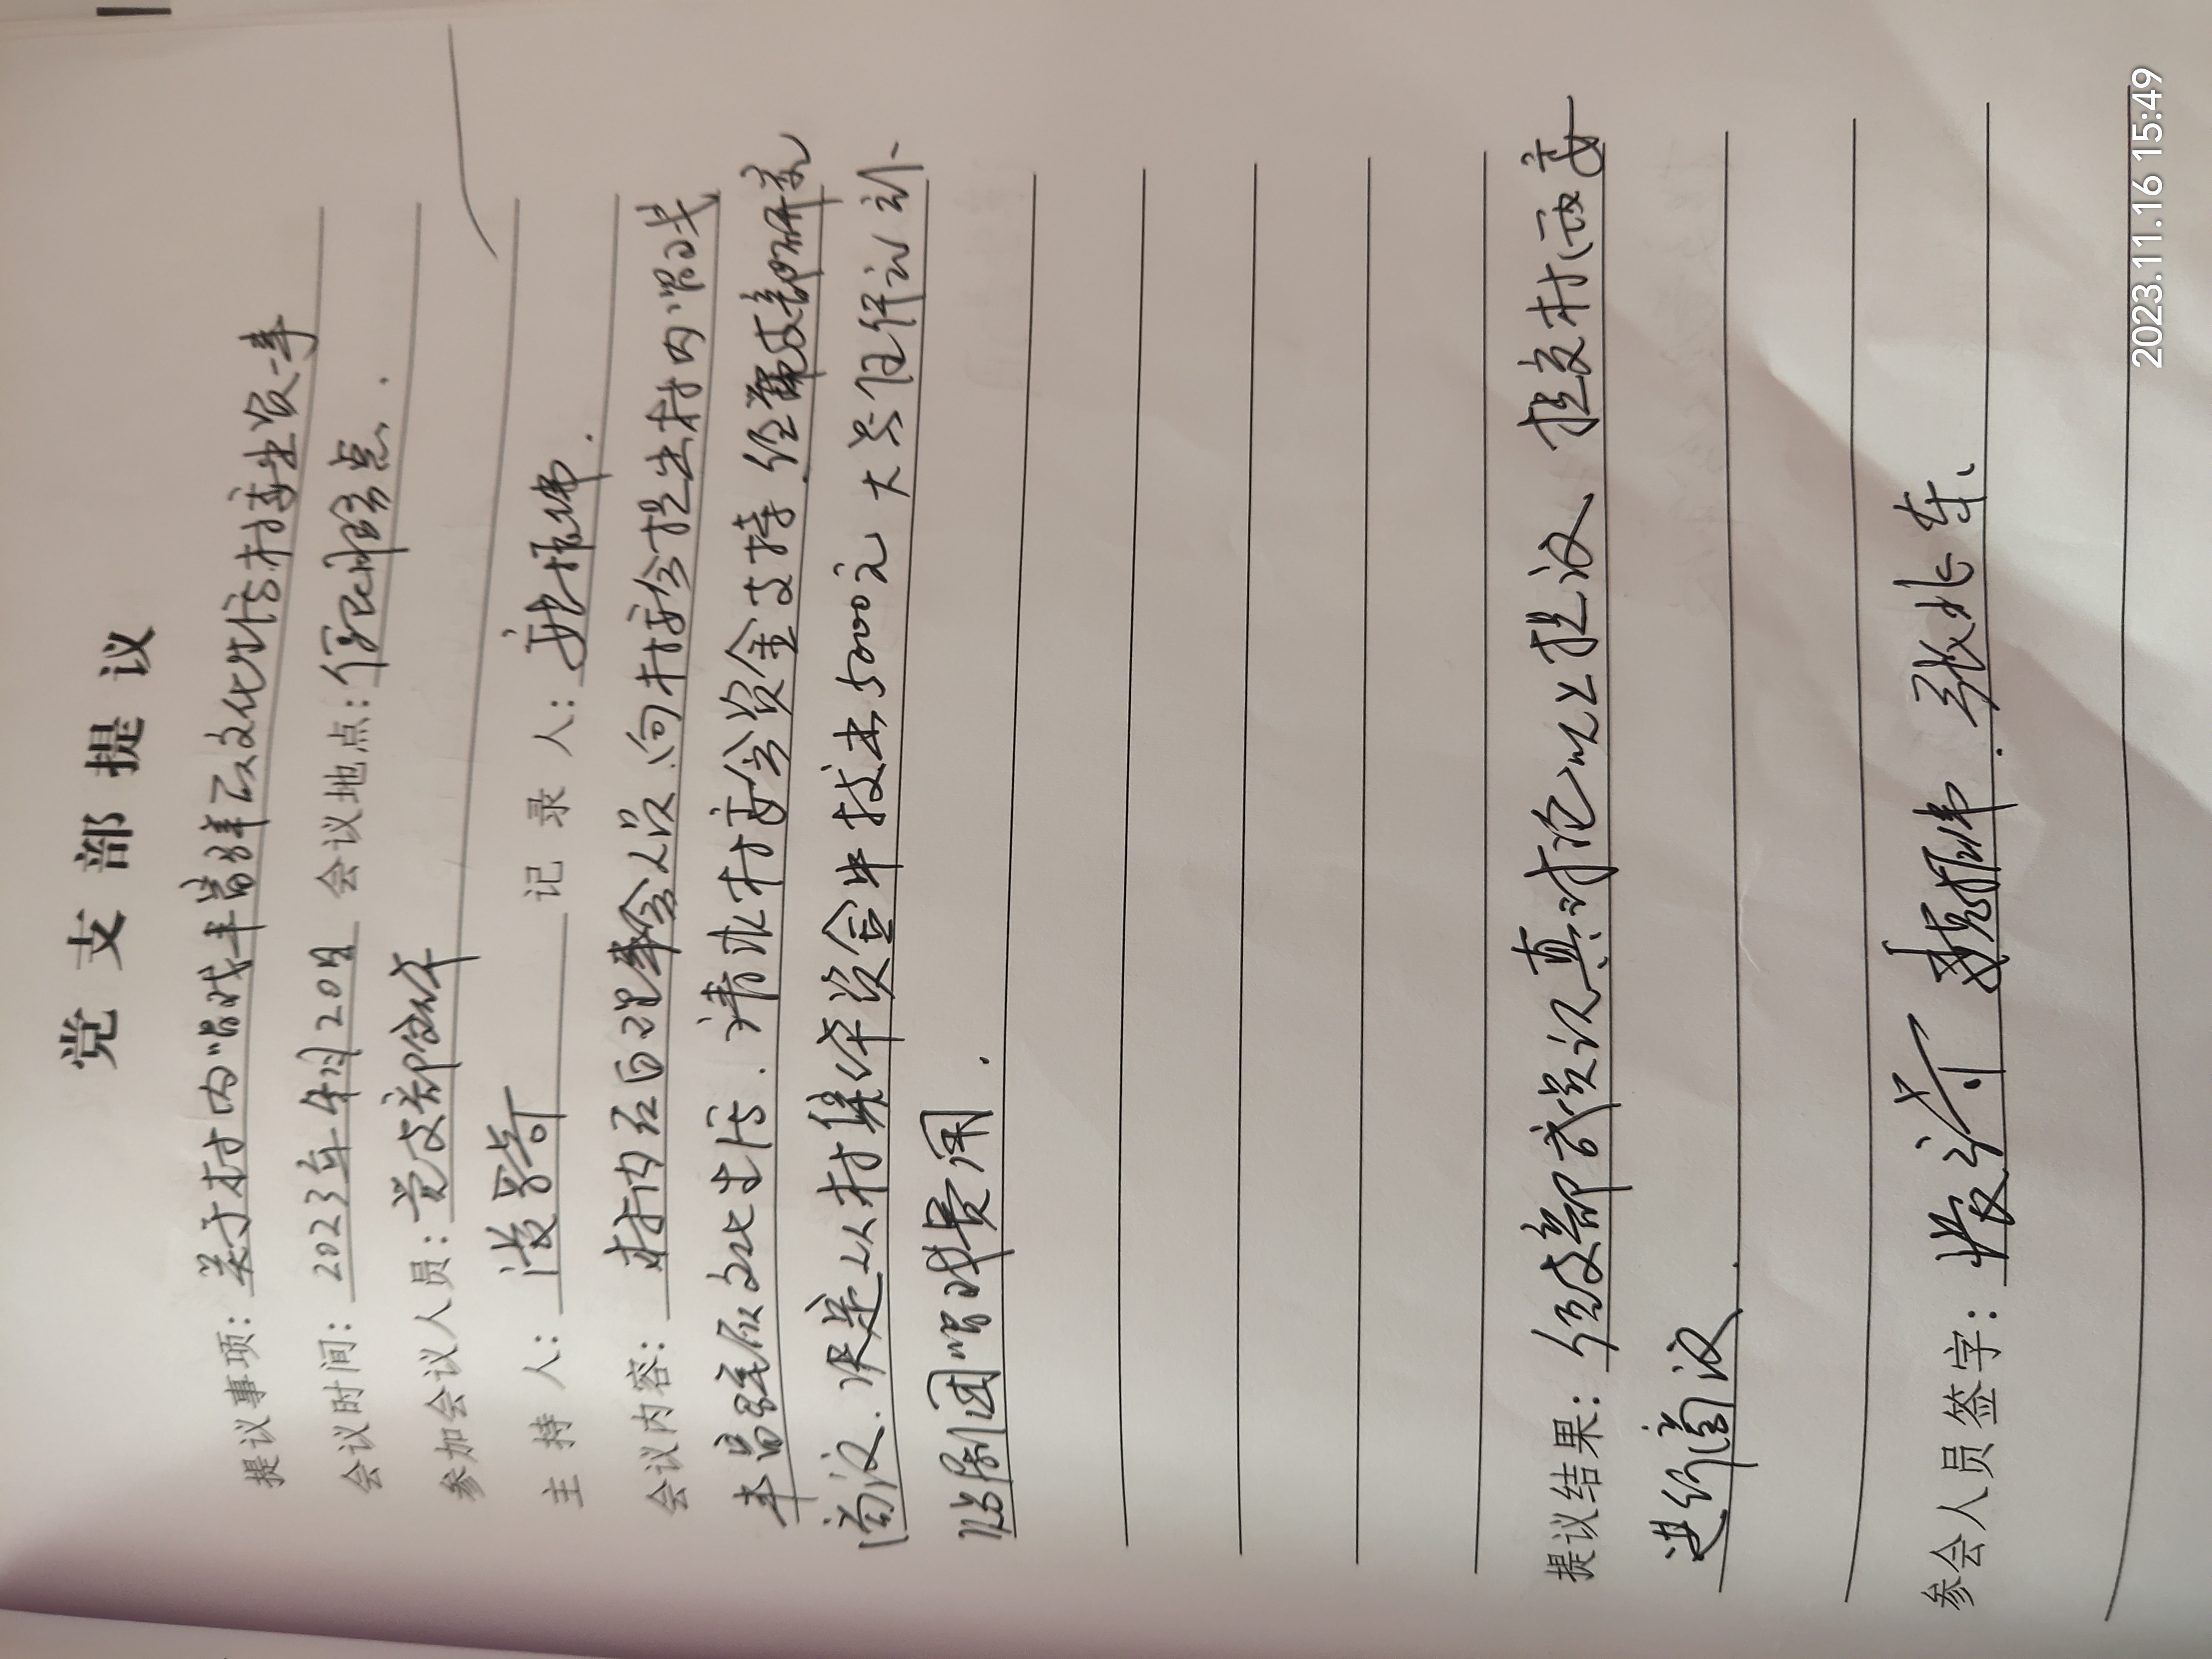 党支部提议
提议事项：关于村内唱戏丰富群众文化生活村委出资一事
会议时间：2023年4月20日 会议地点：便民服务点.
参加会议人员：党支部全体
主持人： 记录人：振伟.
会议内容：村内红白理事会人员、向村委会提出村内唱戏
丰富群众文化生活.请求村委会资金支持.经党支部研究
商议.决定从村集体资金中拔出5000元 大写伍仟元 补
贴剧团唱戏费用.
提议结果：经支部成员认真讨论以上提议、提交村两委
进行商议.
参会人员签字：振伟.张兆东、
2023.11.16 15:49